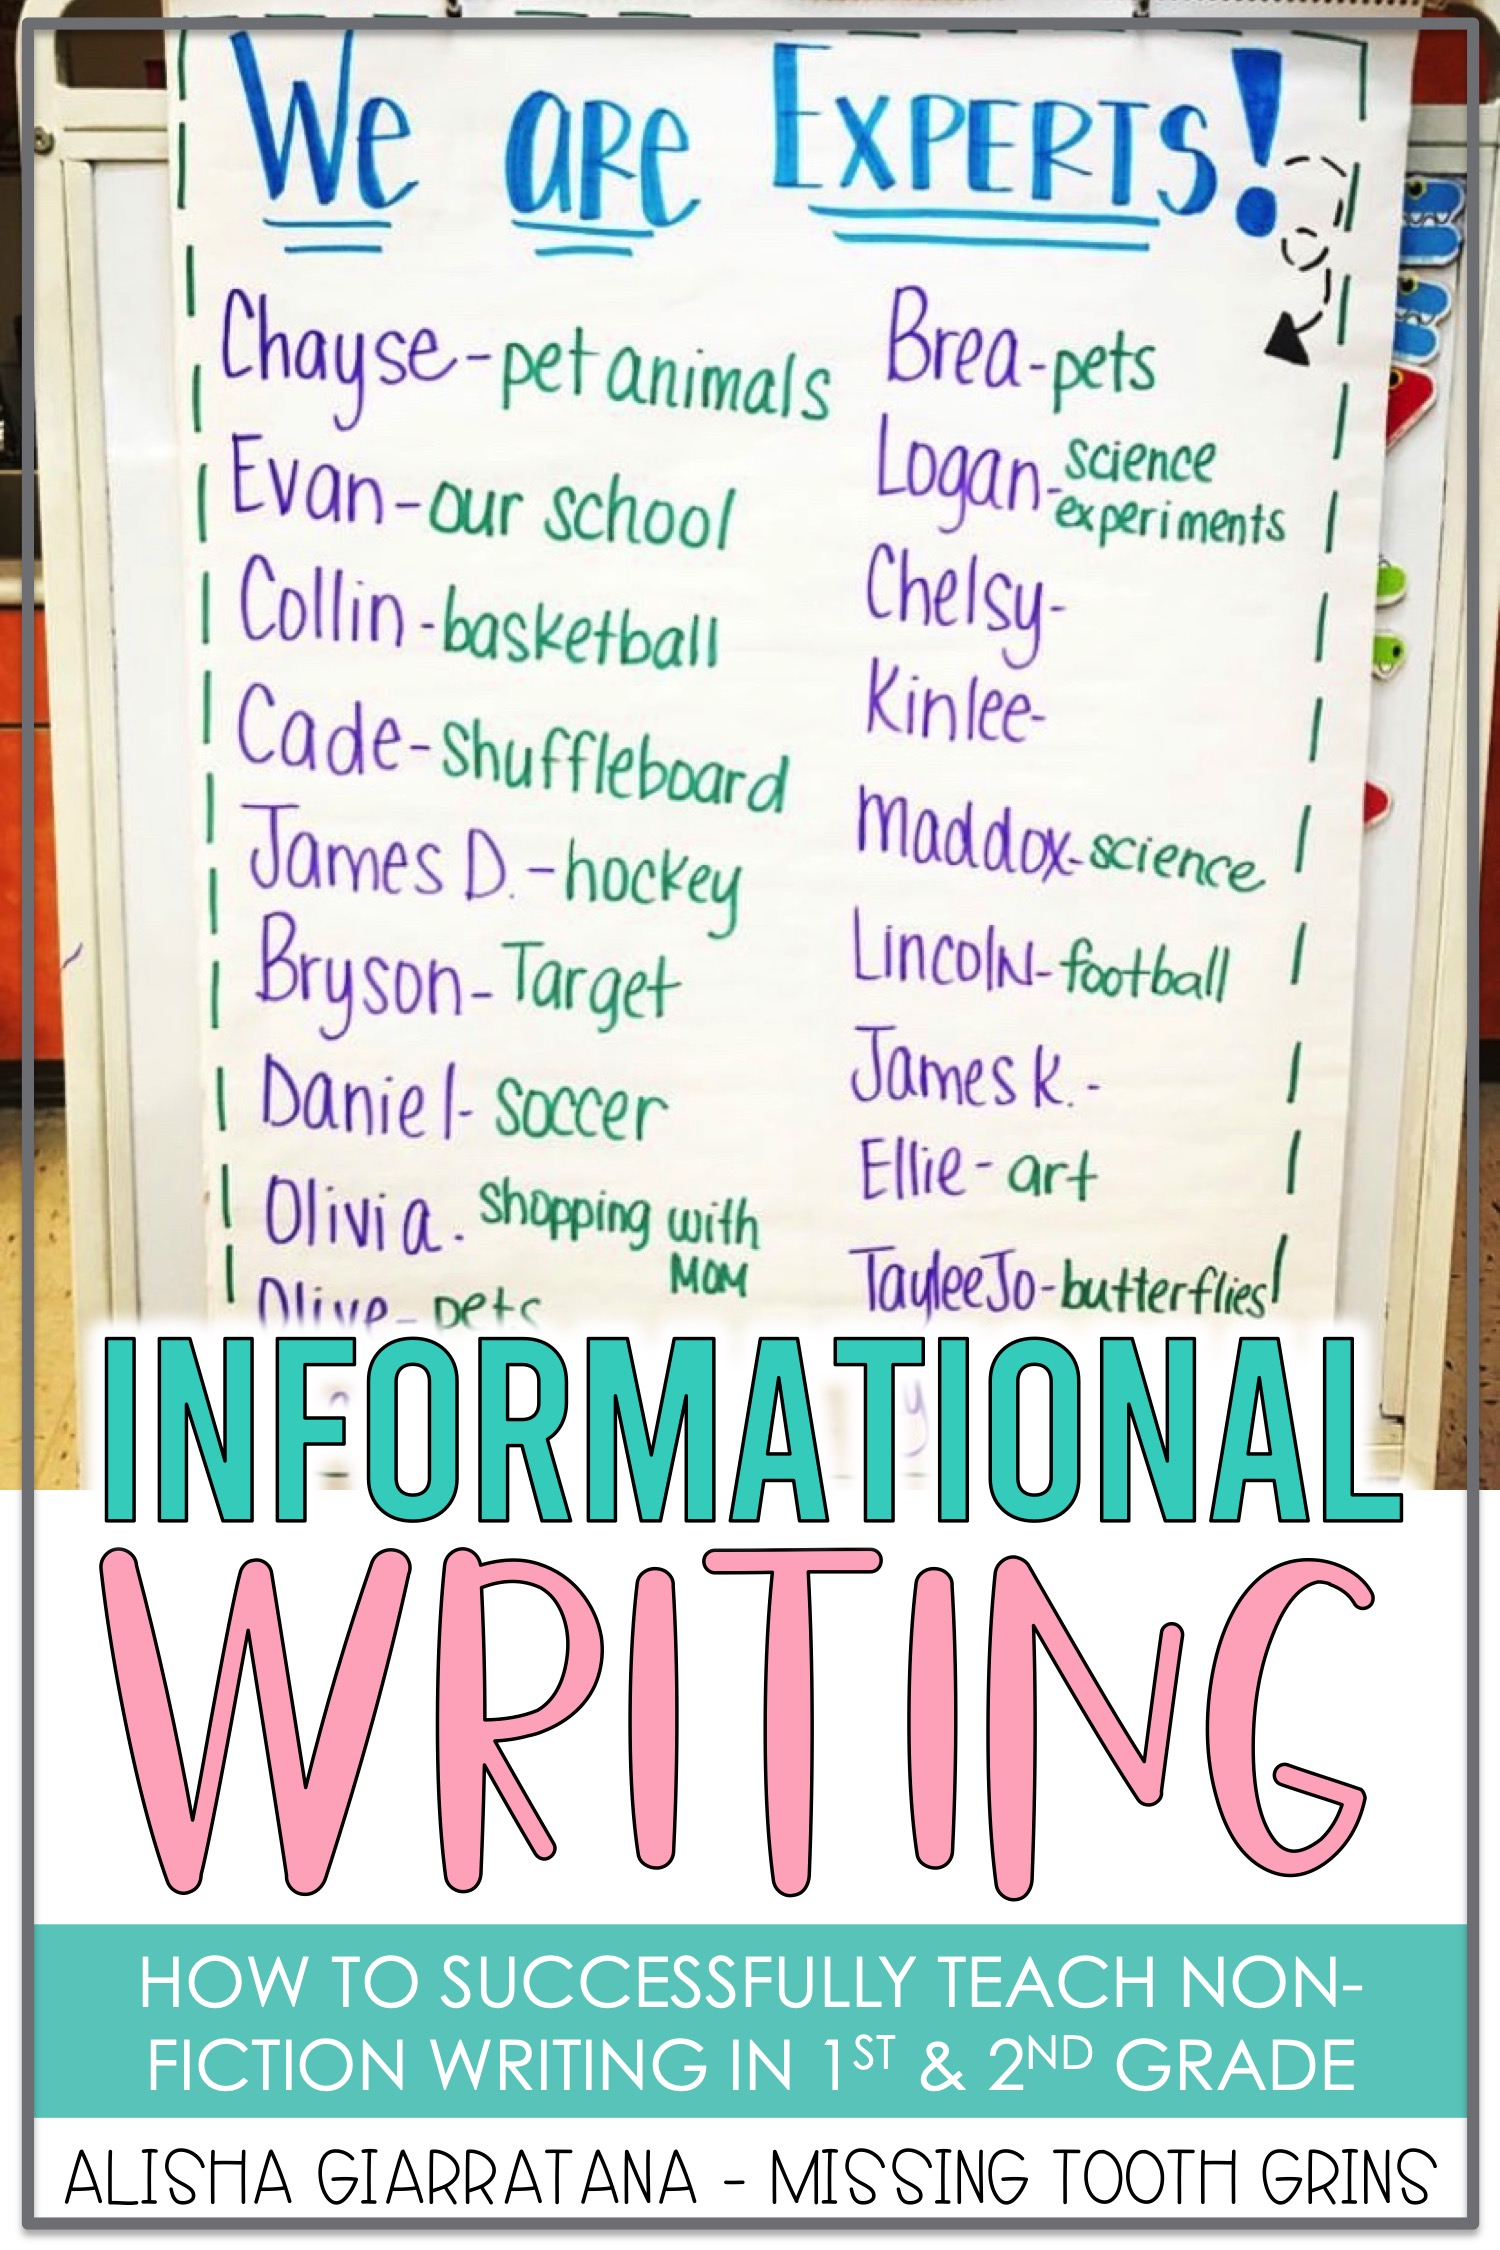 We are Experts!
Chayse-pet animals
Evan-our school
Collin-basketball
Cade-shuffleboard
James D.-hockey
Bryson-Target
Daniel-soccer
Olivia-shopping with
MOM
Olive-pets
Brea-pets
Logan-science
experiments
Chelsy-
Kinlee-
Maddox-science
Lincoln-football
James K.-
Ellie-art
TayleeJo-butterflies
INFORMATIONAL
WRITING
HOW TO SUCCESSFULLY TEACH NON-
FICTION WRITING IN 1ST & 2ND GRADE
ALISHA GIARRATANA - MISSING TOOTH GRINS